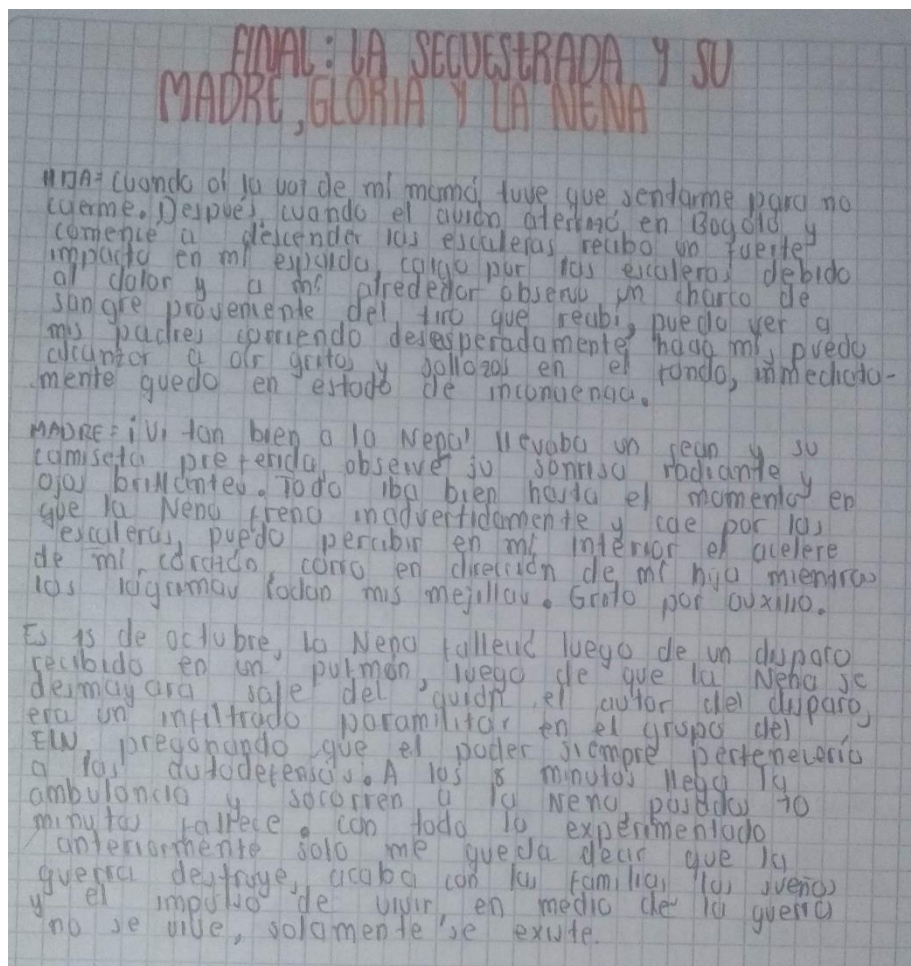 FINAL: LA SECUESTRADA Y SU
MADRE, GLORIA Y LA NENA
HIJA= Cuando oí la voz de mi mamá tuve que sentarme para no
cuerme. Después, cuando el avión aterrizó en Bogotá y
comencé a descender las escaleras recibo un fuerte
impacto en mi espalda, caigo por las escaleras debido
al dolor y a mi alrededor observo un charco de
sangre proveniente del tiro que recibí, puedo ver a
mis padres corriendo desesperadamente hacia mí, puedo
alcanzar a oír gritos y sollozos en el fondo, inmediata-
mente quedo en estado de inconciencia.
MADRE= ¡Vi tan bien a la Nena! llevaba un jean y su
camiseta preferida, observé su sonrisa radiante y
ojos brillantes. Todo iba bien hasta el momento en
que la Nena frena inadvertidamente y cae por las
escaleras, puedo percibir en mi interior el acelere
de mi corazón, corro en dirección de mi hija mientras
las lágrimas rodan mis mejillas. Grito por auxilio.
Es 15 de octubre, la Nena falleció luego de un disparo
recibido en un pulmón, luego de que la Nena se
desmayara sale del avión el autor del disparo,
era un infiltrado paramilitar en el grupo del
ELN, pregonando que el poder siempre pertenecería
a las autodefensas. A los 8 minutos llega la
ambulancia y socorren a la Nena, pasados 10
minutos fallece. Con todo lo experimentado
anteriormente solo me queda decir que la
guerra destruye, acaba con la familia, los sueños
y el impulso de vivir, en medio de la guerra
no se vive, solamente se existe.